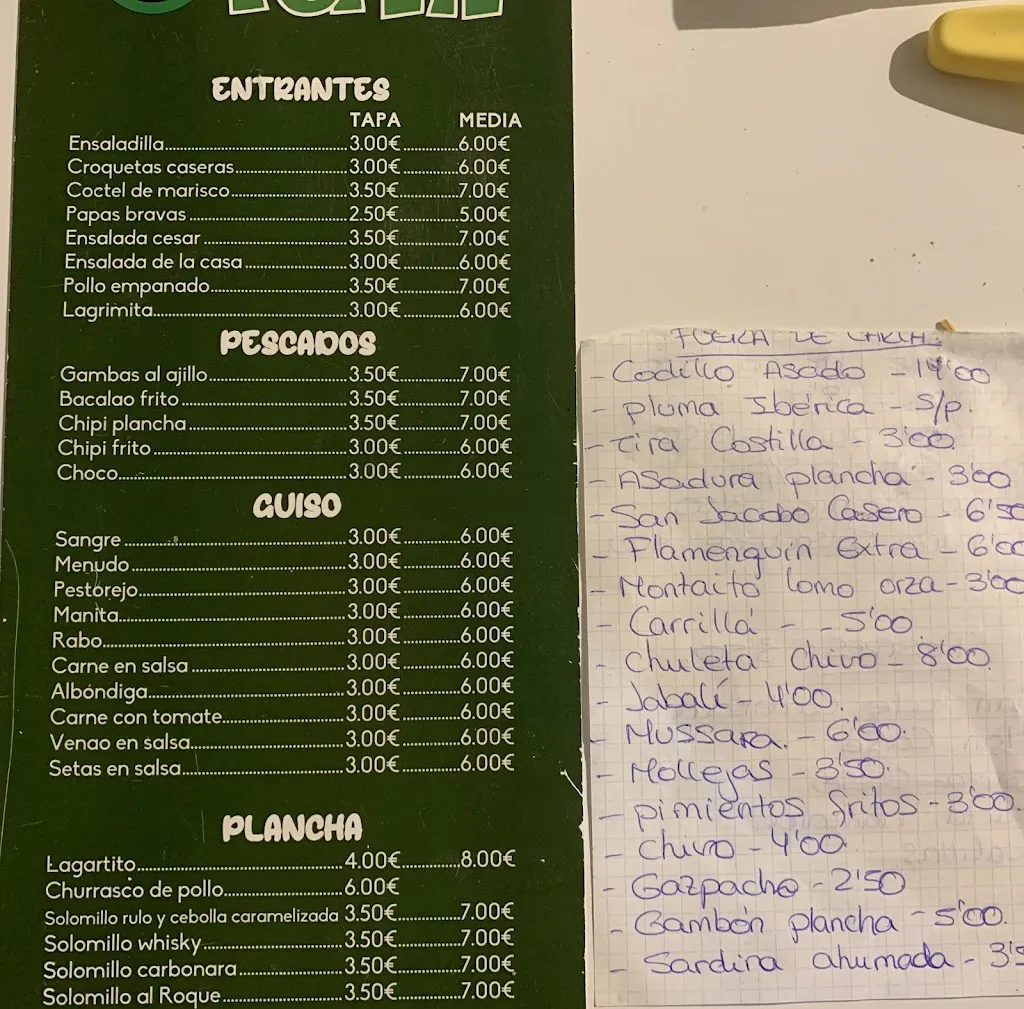 ENTRANTES
TAPA MEDIA
Ensaladilla 3.00€ 6.00€
Croquetas caseras 3.00€ 6.00€
Coctel de marisco 3.50€ 7.00€
Papas bravas 2.50€ 5.00€
Ensalada cesar 3.50€ 7.00€
Ensalada de la casa 3.00€ 6.00€
Pollo empanado 3.50€ 7.00€
Lagrimita 3.00€ 6.00€
PESCADOS
Gambas al ajillo 3.50€ 7.00€
Bacalao frito 3.50€ 7.00€
Chipi plancha 3.50€ 7.00€
Chipi frito 3.00€ 6.00€
Choco 3.00€ 6.00€
GUISO
Sangre 3.00€ 6.00€
Menudo 3.00€ 6.00€
Pestorejo 3.00€ 6.00€
Manita 3.00€ 6.00€
Rabo 3.00€ 6.00€
Carne en salsa 3.00€ 6.00€
Albóndiga 3.00€ 6.00€
Carne con tomate 3.00€ 6.00€
Venao en salsa 3.00€ 6.00€
Setas en salsa 3.00€ 6.00€
PLANCHA
Lagartito 4.00€ 8.00€
Churrasco de pollo 6.00€
Solomillo rulo y cebolla caramelizada 3.50€ 7.00€
Solomillo whisky 3.50€ 7.00€
Solomillo carbonara 3.50€ 7.00€
Solomillo al Roque 3.50€ 7.00€
FUERA DE CARTA
- Codillo Asado - 14'00
- pluma Ibérica - S/p.
- tira Costilla - 3'00
- Asadura plancha - 3'00
- San Jacobo Casero - 6'50
- Flamenquin Extra - 6'00
- Montaito lomo orza - 3'00
- Carrillá - - 5'00
- Chuleta Chivo - 8'00
- Jabalí - 4'00.
- Mussara. - 6'00.
- Mollejas - 3'50.
- pimientos fritos - 3'00.
- Chivo - 4'00.
- Gazpacho - 2'50
- Gambón plancha - 5'00.
- Sardina ahumada -